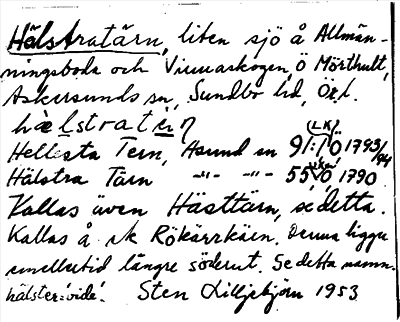 Hälstratärn, liten sjö å Allmän-
ningsboda och Vimarskogen, Ö Mörthult,
Askersunds sn, Sundbo hd, Ör. l.
hælstrat
Hellesta Tern, Asund sn 91:10 1793/94
Hälstra Tärn -"- -"- 55 1790
Kallas även Hästtärn, se detta.
Kallas å sk Rökärrkäen. Denna ligger
emellertid längre söderut. Se detta namn.
hälster='vide'. Sten Lilljebjörn 1953